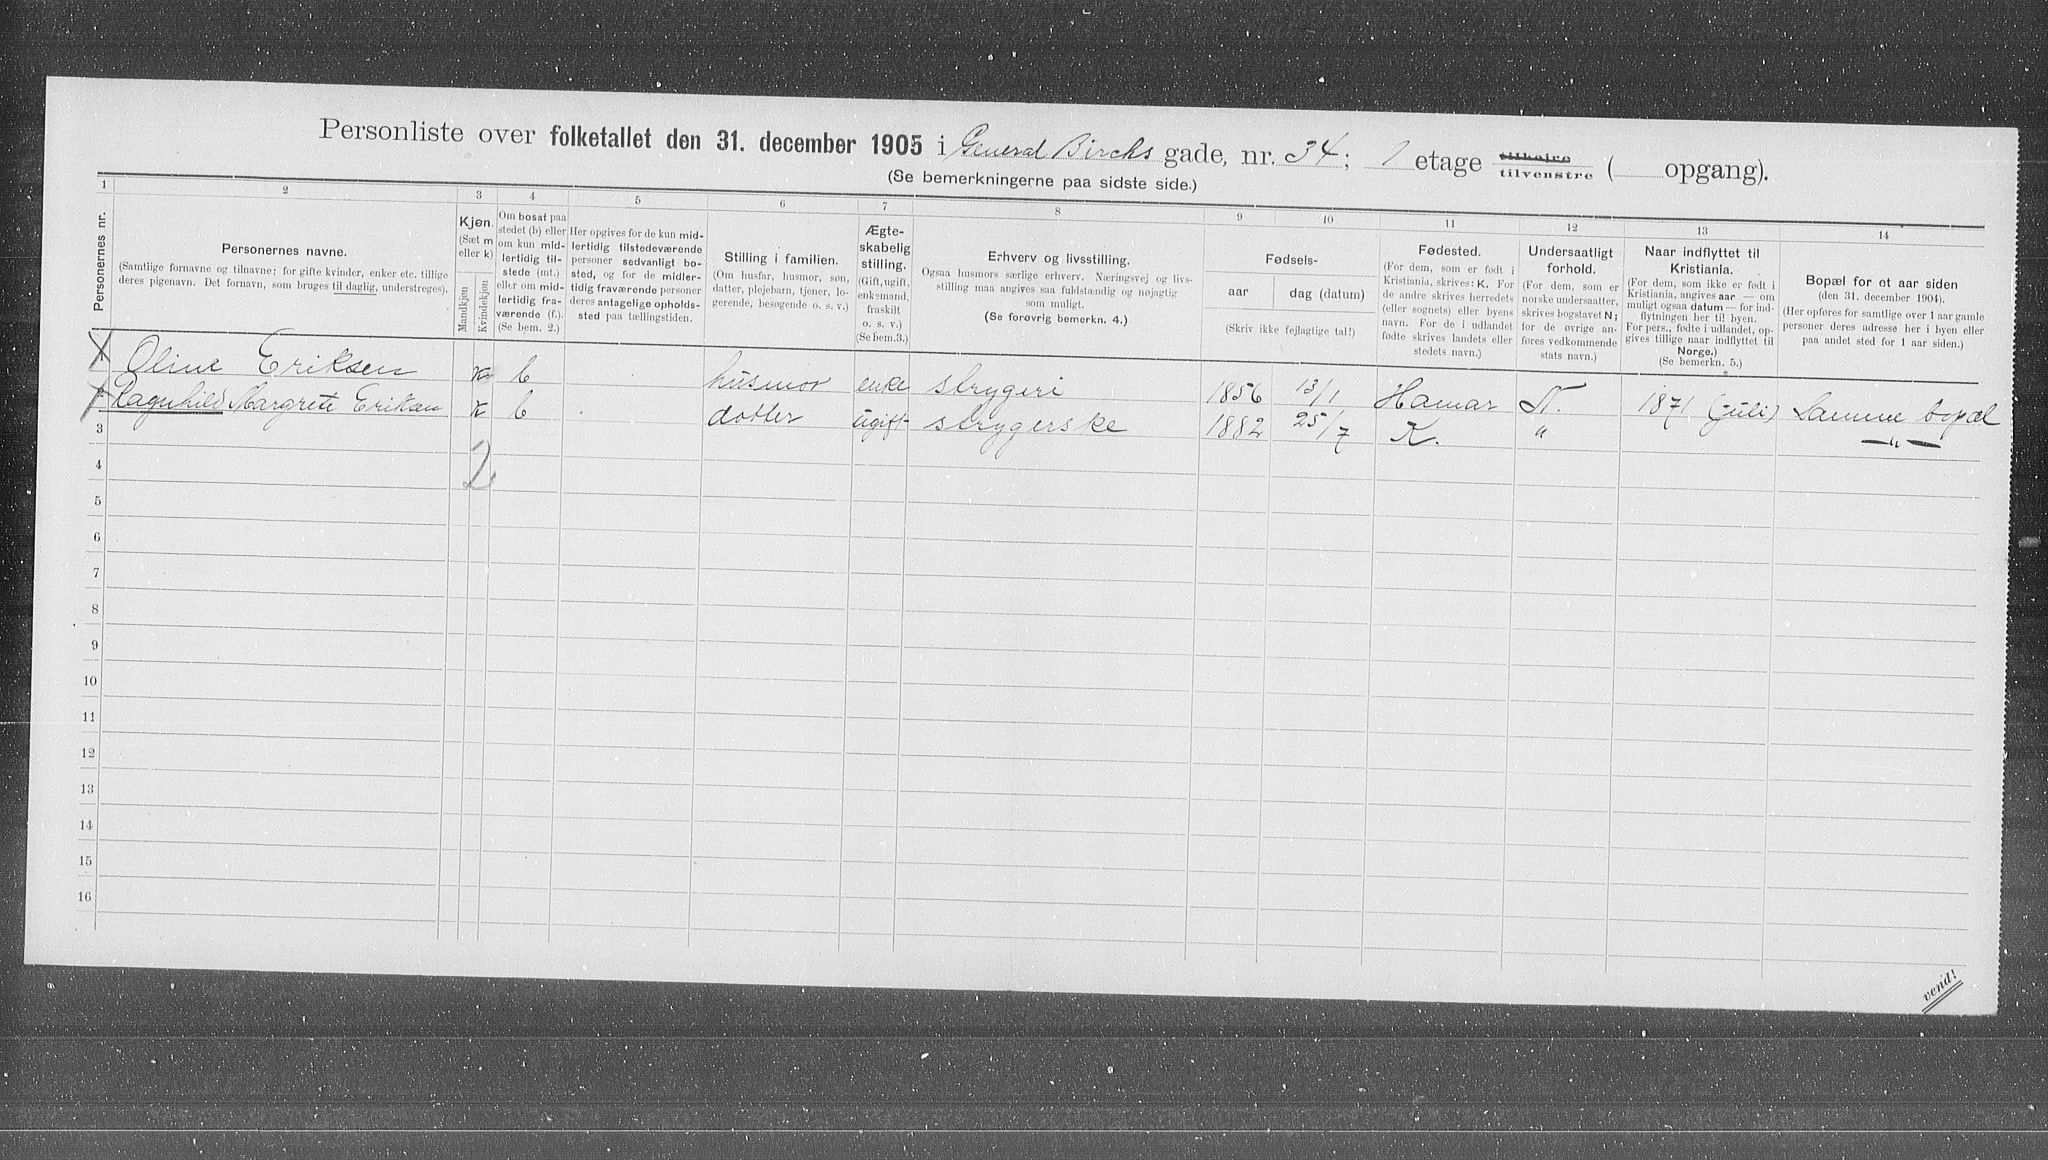 Personliste over folketallet den 31. december 1905 i General Birchs gade, nr. 34; 1 etage tilhøire tilvenstre ( opgang).
(Se bemerkningerne paa sidste side.)
1 2 3 4 5 6 7 8 9 10 11 12 13 14
Personernes nr.
Personernes navne.
(Samtlige fornavne og tilnavne; for gifte kvinder, enker etc. tillige
deres pigenavn. Det fornavn, som bruges til daglig, understreges).
Kjøn.
(Sæt m
eller k)
Mandkjøn
Kvindekjøn
Om bosat paa
stedet (b) eller
om kun mid-
lertidig til-
stede (mt.)
eller om mid-
lertidig fra-
værende (f.).
(Se bem. 2.)
Her opgives for de kun mid-
lertidig tilstedeværende
personer sedvanligt bo-
sted, og for de midler-
tidig fraværende personer
deres antagelige opholds-
sted paa tællingstiden.
Stilling i familien.
(Om husfar, husmor, søn,
datter, plejebarn, tjener, lo-
gerende, besøgende o. s. v.)
Ægte-
skabelig
stilling.
(Gift, ugift,
enkemand,
fraskilt
o. s. v.)
(Se bem.3.)
Erhverv og livsstilling.
Ogsaa husmors særlige erhverv. Næringsvej og livs-
stilling maa angives saa fuldstændig og nøjagtig
som muligt.
(Se forøvrig bemerkn. 4.)
Fødsels-
aar
dag (datum)
(Skriv ikke fejlagtige tal!)
Fødested.
(For dem, som er født i
Kristiania, skrives: K. For
de andre skrives herredets
(eller sognets) eller byens
navn. For de i udlandet
fødte skrives landets eller
stedets navn.)
Undersaatligt
forhold.
(For dem, som er
norske undersaatter,
skrives bogstavet N;
for de øvrige an-
føres vedkommende
stats navn.)
Naar indflyttet til
Kristiania.
(For dem, som ikke er født i
Kristiania, angives aar — om
muligt ogsaa datum — for ind-
flytningen her til byen.
For pers., fødte i udlandet, op-
gives tillige naar indflyttet til
Norge.)
(Se bemerkn. 5.)
Bopæl for et aar siden
(den 31. december 1904).
(Her opføres for samtlige over 1 aar gamle
personer deres adresse her i byen eller
paa andet sted for 1 aar siden.)
1 Oline Eriksen k b husmor enke strygeri 1856 13/1 Hamar N. 1871 (juli) Samme bopæl
2 Ragnhild Margrete Eriksen k b datter ugift strygerske 1882 25/7 K. " —"—
3
2
4
5
6
7
8
9
10
11
12
13
14
15
16
vend!